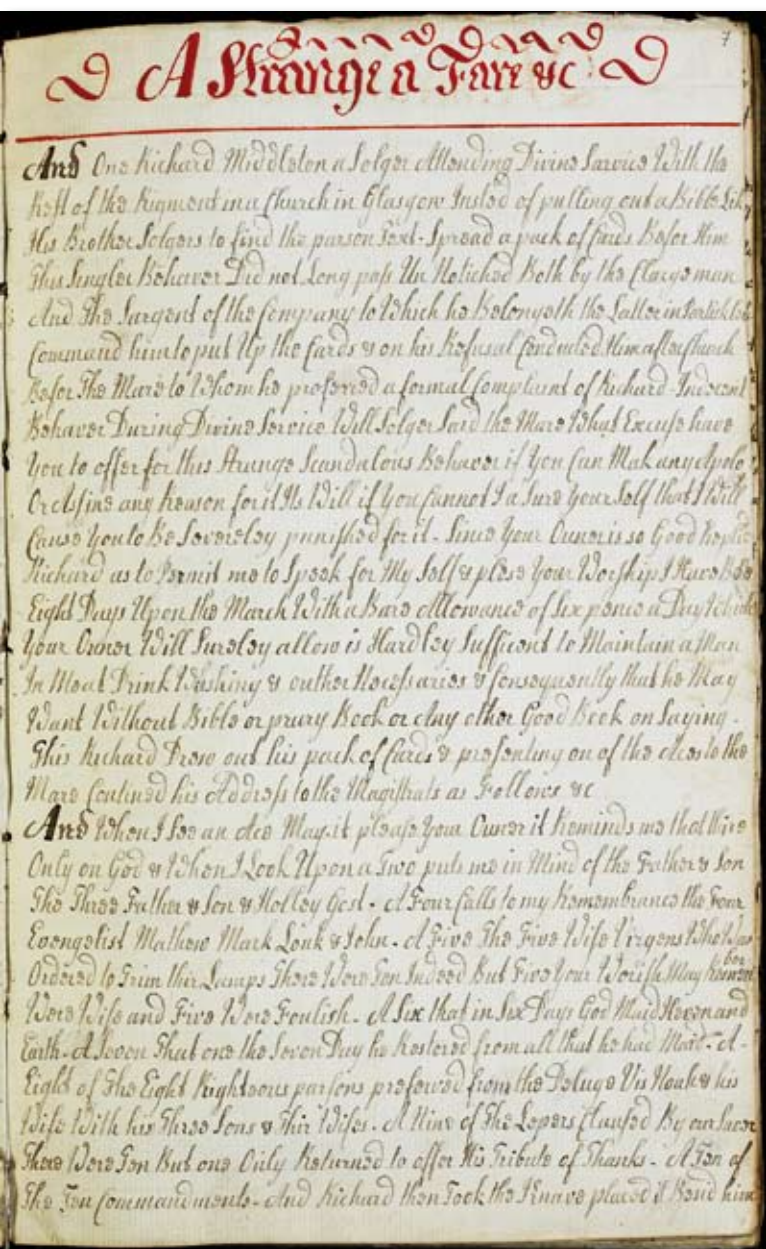 7
A Strange a Fare &c
And One Richard Middleton a Solger Attending Divine Sarvice With the
Rest of the Rigment in a Church in Glasgow Insted of pulling out a Bible Lik
His Brother Solgers to find the parson Text - Spread a pack of Cards Befor Him
This Singler Behaver Did not Long pass Un Notiched Both by the Clargeman
And The Sargent of the Company to Which he Belongeth the Latter in
Command him to put Up the Cards & on his Refusal Conducted Him after Church
Befor The Mare to Whom he preferred a formal Complaint of Richard Indecent
Behaver During Divine Service Will Solger Said the Mare What Excuse have
You to offer for this Strange Scandalous Behaver if You Can Mak any Apolo
Or Asine any Reason for it Its Will if You Cannot I a Sure Your Self that I Will
Cause You to Be Severeley punished for it - Since Your Owner is so Good
Richard as to Permit me to Speek for My Self & plese Your Worship I Have Bee
Eight Days Upon the March With a Bare Allowance of Six penes a Day Which
Your Owner Will Sureley allow is Hardley Sufficent to Maintain a Man
In Meat Drink Washing & outher Necessaries & Consequently that he May
Want Without Bible or prary Book or Any other Good Book on Saying -
This Richard Drew out his pack of Cards & presenting on of the Aces to the
Mare Contined his Address to the Magistrats as Follows &c
And When I See an Ace May it please Your Owner it Reminds me that thire
Only on God & When I Look Upon a Two puts me in Mind of the Father & Son
The Three Father & Son & Holley Gost - A Four Calls to my Remembrance the Four
Evengelist Mathew Mark Louk & John - A Five The Five Wise Virgens Who War
Ordered to Trim thir Lamps There Were Ten Indeed But Five Your Worish May Remem
ber
Were Wise and Five Were Foulish - A Six that in Six Days God Maid Heven and
Earth - A Seven That one the Seven Day he Restored from all that he had Maid - A -
Eight of The Eight Righteous parsons preserved from the Deluge Vis Noah & his
Wife With his Three Sons & Thir Wifes - A Nine of The Lepers Clansed By our
There Were Ten But one Only Returned to offer His Tribute of Thanks - A Ten of
The Ten Commandments - And Richard then Took the Knave placed it Bend him